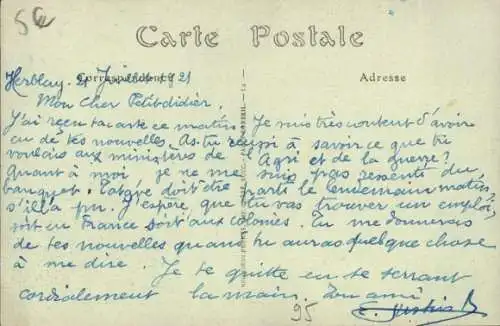 5€
Carte Postale
Correspondance
Adresse
Herblay, 2 21
Mon Cher Petitdidier,
J'ai reçu ta carte ce matin. Je suis très content d'avoir
eu de tes nouvelles. As-tu réussi à savoir ce que tu
voulais aux ministères de l'Agri et de la guerre?
Quant à moi, je ne me suis pas ressenti du
banquet. doit être parti le lendemain matin
s'il a pu. J'espère que tu vas trouver un emploi,
soit en France soit aux colonies. Tu me donneras
de tes nouvelles quand tu auras quelque chose
à me dire. Je te quitte en te serrant
cordialement la main. Ton ami
95